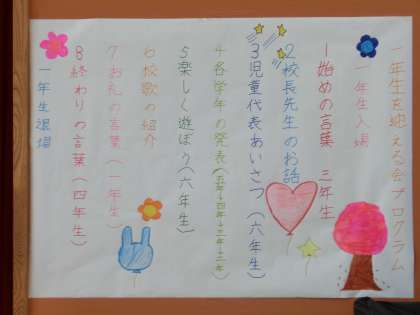 一年生を迎える会プログラム
一年生入場
1始めの言葉 三年生
2校長先生のお話
3児童代表あいさつ(六年生)
4各学年の発表(五年→四年→三年→二年)
5楽しく遊ぼう(六年生)
6校歌の紹介
7お礼の言葉(一年生)
8終わりの言葉(四年生)
一年生退場